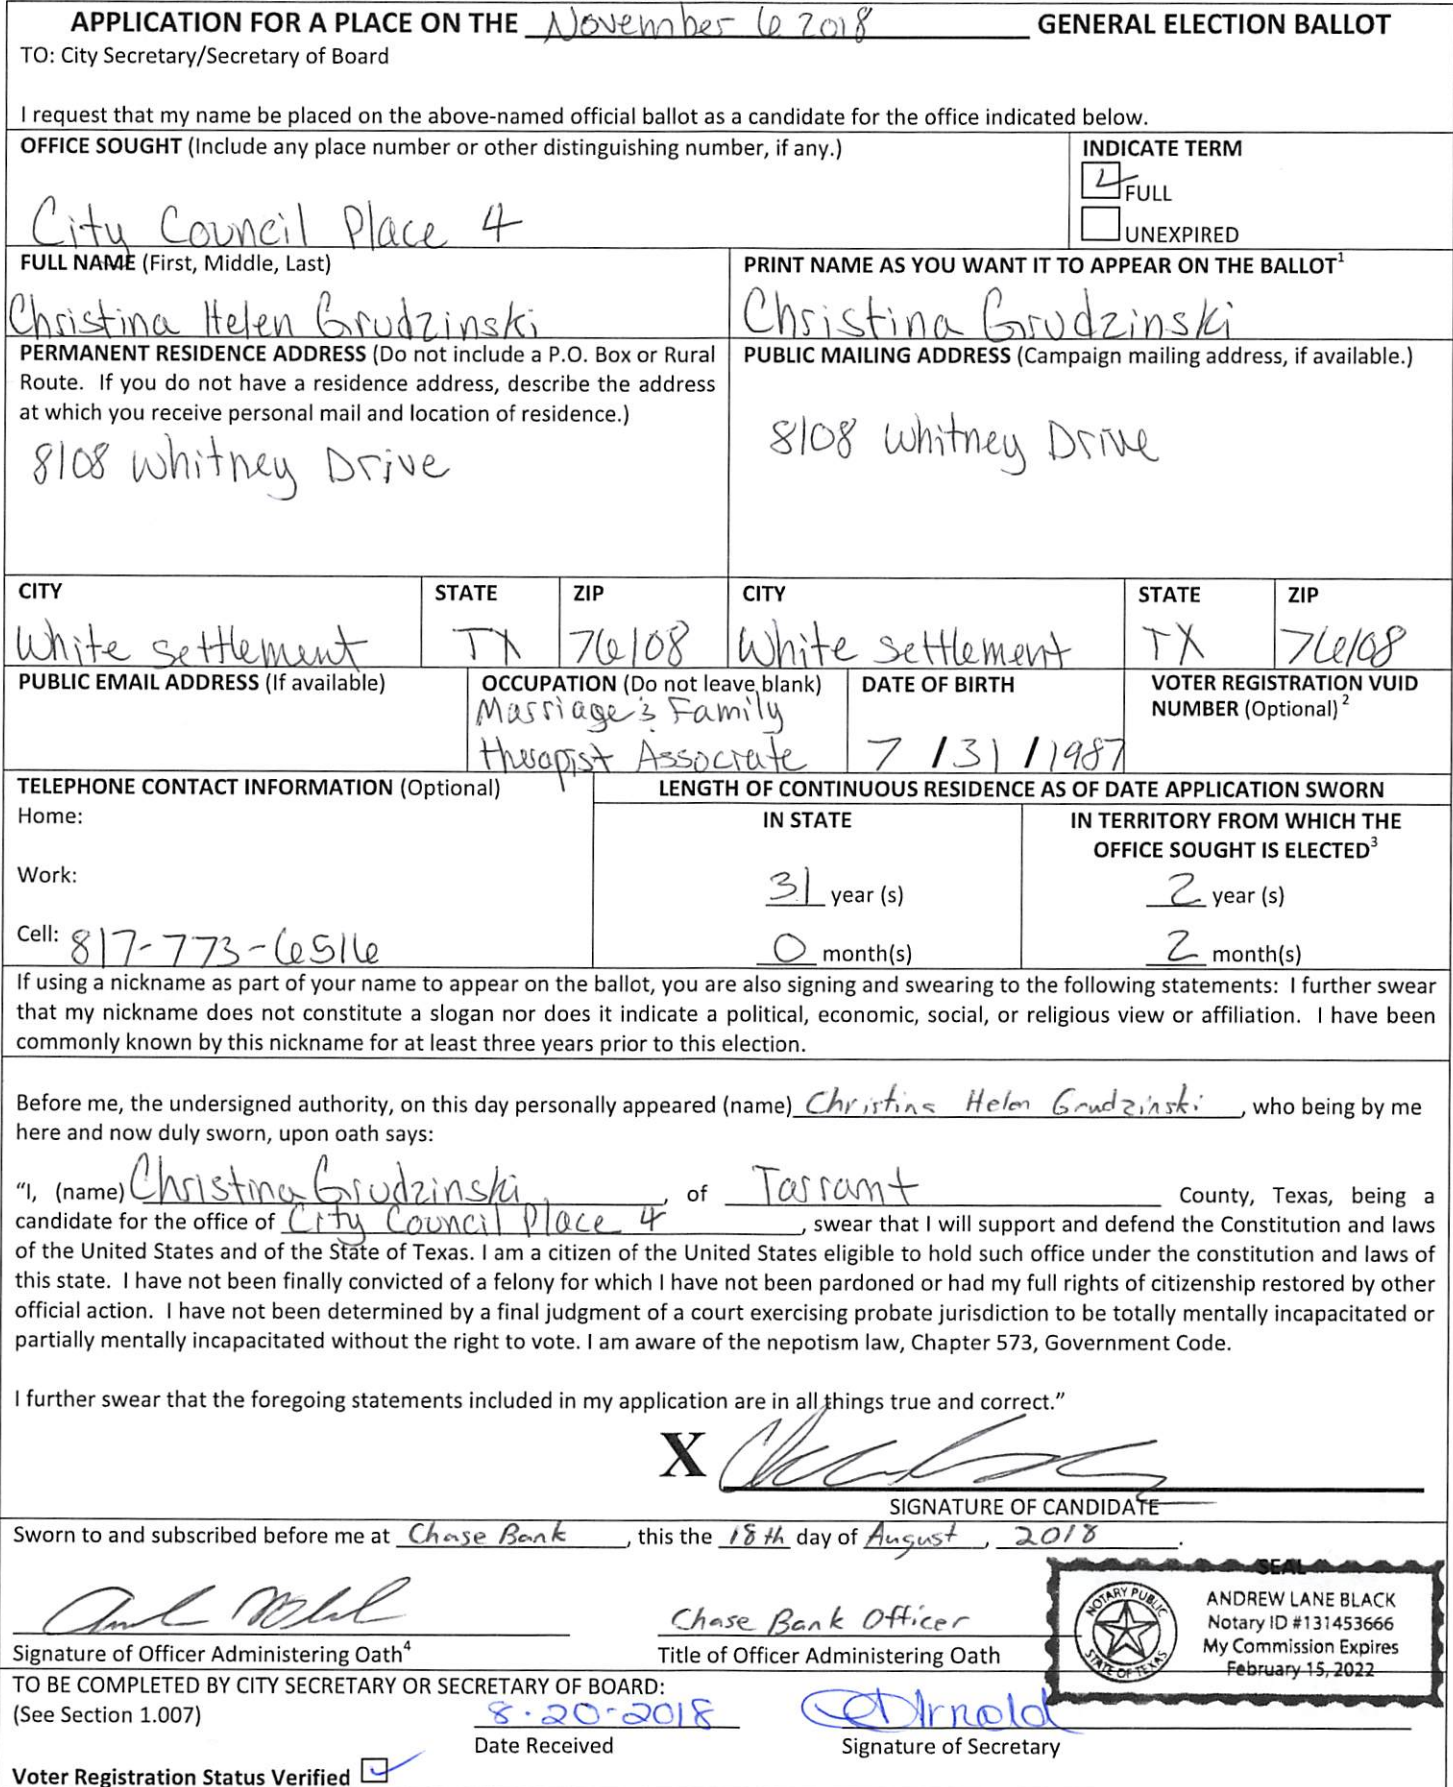 APPLICATION FOR A PLACE ON THE November 6 2018 GENERAL ELECTION BALLOT
TO: City Secretary/Secretary of Board
I request that my name be placed on the above-named official ballot as a candidate for the office indicated below.
OFFICE SOUGHT (Include any place number or other distinguishing number, if any.)
City Council Place 4
INDICATE TERM
FULL
UNEXPIRED
FULL NAME (First, Middle, Last)
Christina Helen Grudzinski
PRINT NAME AS YOU WANT IT TO APPEAR ON THE BALLOT¹
Christina Grudzinski
PERMANENT RESIDENCE ADDRESS (Do not include a P.O. Box or Rural
Route. If you do not have a residence address, describe the address
at which you receive personal mail and location of residence.)
8108 Whitney Drive
PUBLIC MAILING ADDRESS (Campaign mailing address, if available.)
8108 Whitney Drive
CITY
White settlement
STATE
TX
ZIP
76108
CITY
White settlement
STATE
TX
ZIP
76108
PUBLIC EMAIL ADDRESS (If available)
OCCUPATION (Do not leave blank)
Marriage & Family
Therapist Associate
DATE OF BIRTH
7 /31 /1987
VOTER REGISTRATION VUID
NUMBER (Optional) ²
TELEPHONE CONTACT INFORMATION (Optional)
Home:
Work:
Cell: 817-773-6516
LENGTH OF CONTINUOUS RESIDENCE AS OF DATE APPLICATION SWORN
IN STATE
31 year (s)
0 month(s)
IN TERRITORY FROM WHICH THE
OFFICE SOUGHT IS ELECTED³
2 year (s)
2 month(s)
If using a nickname as part of your name to appear on the ballot, you are also signing and swearing to the following statements: I further swear
that my nickname does not constitute a slogan nor does it indicate a political, economic, social, or religious view or affiliation. I have been
commonly known by this nickname for at least three years prior to this election.
Before me, the undersigned authority, on this day personally appeared (name) Christina Helen Grudzinski , who being by me
here and now duly sworn, upon oath says:
“I, (name) Christina Grudzinski , of Tarrant County, Texas, being a
candidate for the office of City Council Place 4 , swear that I will support and defend the Constitution and laws
of the United States and of the State of Texas. I am a citizen of the United States eligible to hold such office under the constitution and laws of
this state. I have not been finally convicted of a felony for which I have not been pardoned or had my full rights of citizenship restored by other
official action. I have not been determined by a final judgment of a court exercising probate jurisdiction to be totally mentally incapacitated or
partially mentally incapacitated without the right to vote. I am aware of the nepotism law, Chapter 573, Government Code.
I further swear that the foregoing statements included in my application are in all things true and correct.”
X
SIGNATURE OF CANDIDATE
Sworn to and subscribed before me at Chase Bank , this the 18th day of August , 2018 .
SEAL
NOTARY PUBLIC
STATE OF TEXAS
ANDREW LANE BLACK
Notary ID #131453666
My Commission Expires
February 15, 2022
Signature of Officer Administering Oath⁴
Chase Bank Officer
Title of Officer Administering Oath
TO BE COMPLETED BY CITY SECRETARY OR SECRETARY OF BOARD:
(See Section 1.007)
8-20-2018
Date Received
Arnold
Signature of Secretary
Voter Registration Status Verified